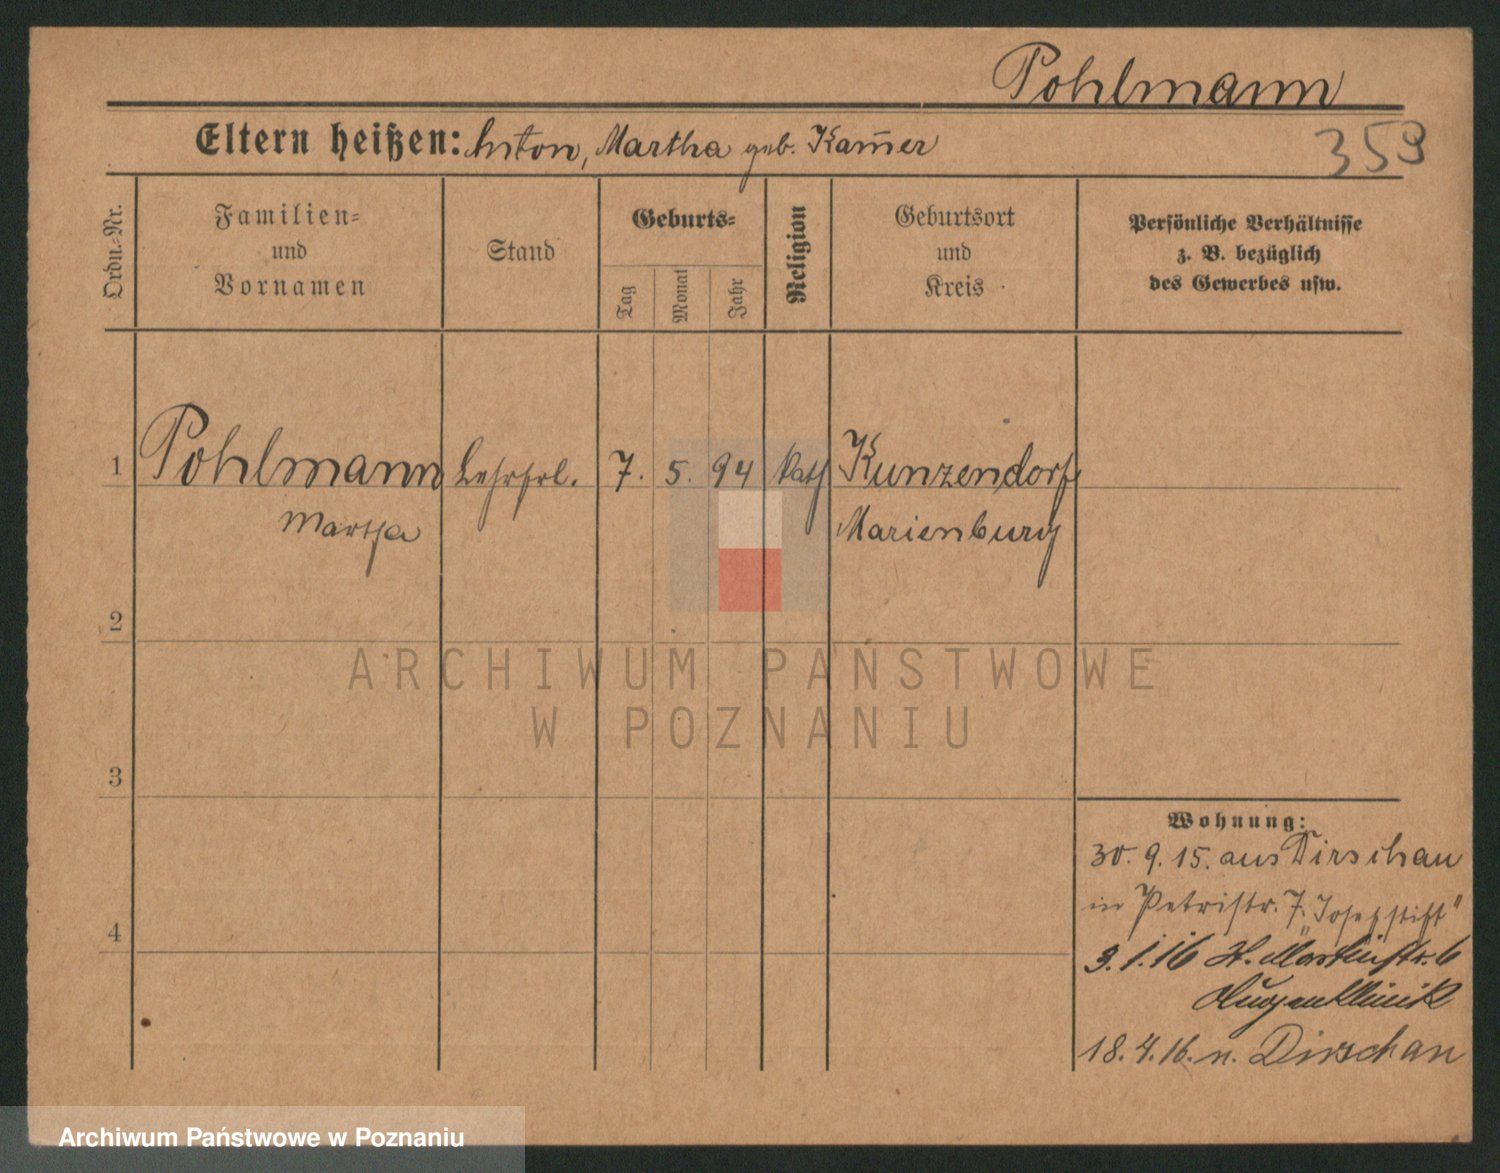 Pohlmann
Eltern heißen: Anton, Martha geb. Kam̄er
359
Ordn.-Nr.
Familien-
und
Vornamen
Stand
Geburts-
Tag
Monat
Jahr
Religion
Geburtsort
und
Kreis
Persönliche Verhältnisse
z. B. bezüglich
des Gewerbes usw.
1 Pohlmann Lehrfrl. 7. 5. 94 kath Kunzendorf
Martha Marienburg
2
ARCHIWUM PAŃSTWOWE
W POZNANIU
3
Wohnung:
30. 9. 15. aus Dirschau
in Petristr. 7. „Josefstift"
4
3. 1. 16 St. Martinstr. 6
Augenklinik
18. 4. 16. n. Dirschau
Archiwum Państwowe w Poznaniu